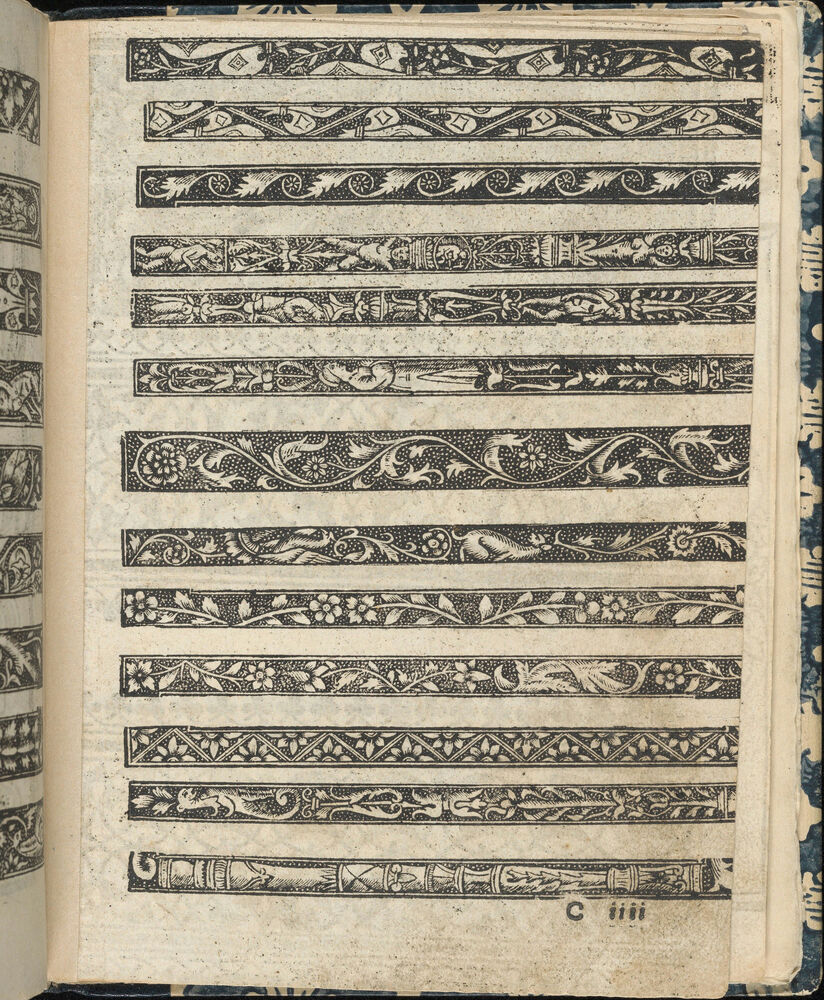 C iiii